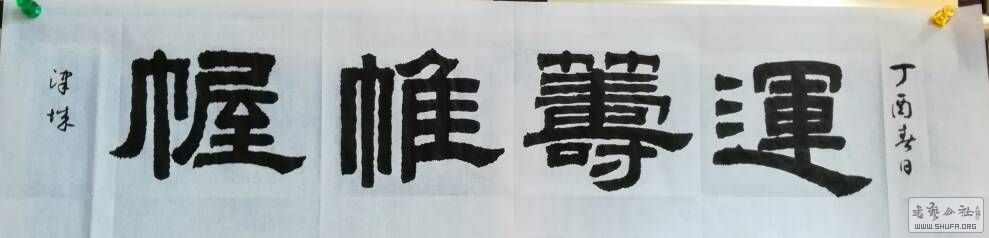 丁酉春日
運籌帷幄
书艺公社
WWW.SHUFA.ORG